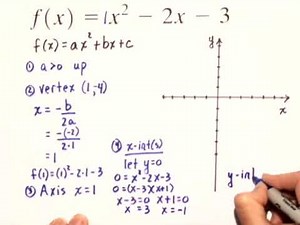 f(x) = 1x² - 2x - 3
f(x) = ax² + bx + c
① a>0 up
② vertex (1,-4)
x = -b/2a
= -(-2)/2·1
= 1
f(1) = (1)² - 2·1 - 3
③ Axis x = 1
④ x-int(s)
let y=0
0 = x² - 2x - 3
0 = (x-3)(x+1)
x-3=0 x+1=0
x = 3 x = -1
y
x
y-int